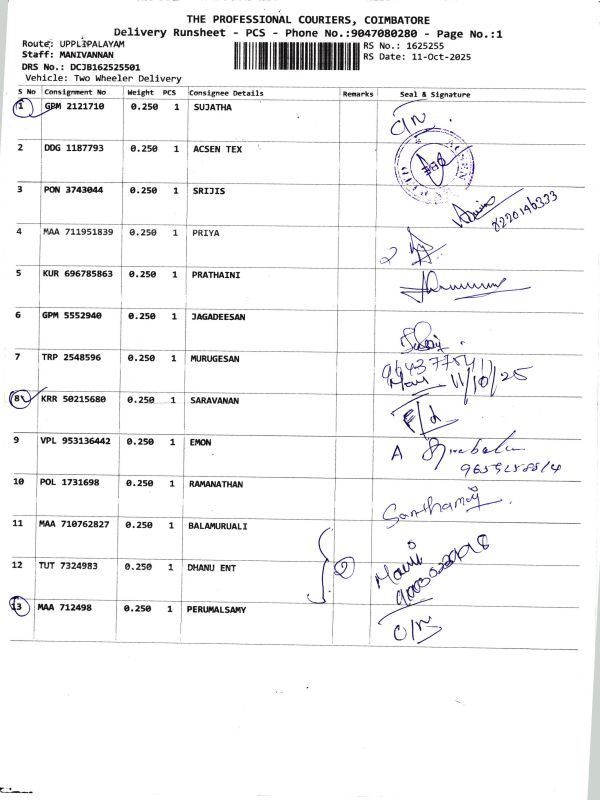 THE PROFESSIONAL COURIERS, COIMBATORE
Delivery Runsheet - PCS - Phone No.:9047080280 - Page No.:1
Route: UPPLIPALAYAM
RS No.: 1625255
Staff: MANIVANNAN
RS Date: 11-Oct-2025
DRS No.: DCJB162525501
Vehicle: Two Wheeler Delivery
S No Consignment No Weight PCS Consignee Details Remarks Seal & Signature
1 GPM 2121710 0.250 1 SUJATHA
2 DDG 1187793 0.250 1 ACSEN TEX
3 PON 3743044 0.250 1 SRIJIS
8220146333
4 MAA 711951839 0.250 1 PRIYA
2
5 KUR 696785863 0.250 1 PRATHAINI
6 GPM 5552940 0.250 1 JAGADEESAN
7 TRP 2548596 0.250 1 MURUGESAN
11/10/25
8 KRR 50215680 0.250 1 SARAVANAN
F/d
9 VPL 953136442 0.250 1 EMON
A
10 POL 1731698 0.250 1 RAMANATHAN
Santhamoy
11 MAA 710762827 0.250 1 BALAMURUALI
12 TUT 7324983 0.250 1 DHANU ENT
2
13 MAA 712498 0.250 1 PERUMALSAMY